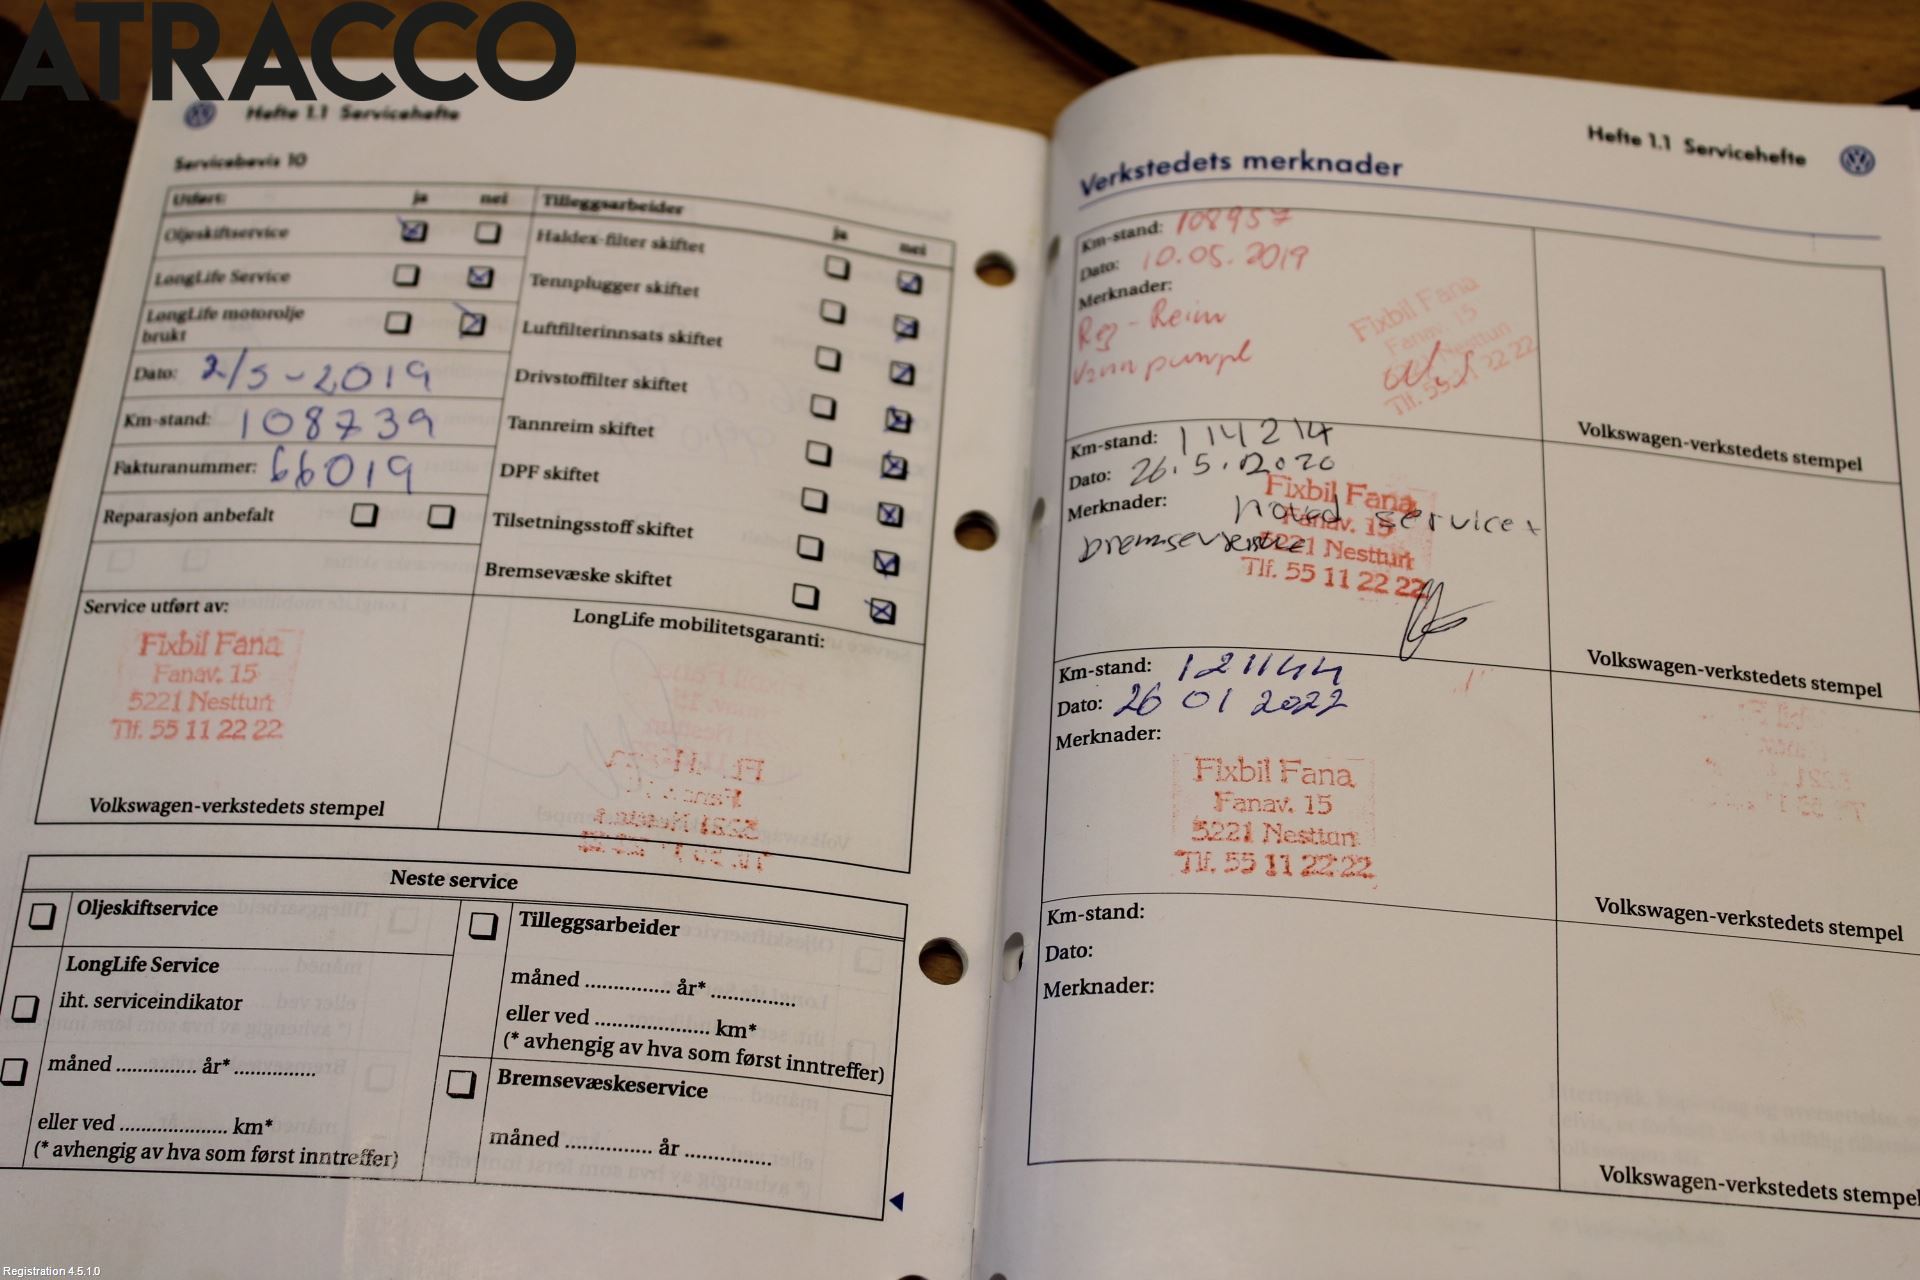 ATRACCO
Hefte 1.1 Servicehefte
Servicebevis 10
Utført: ja nei
Oljeskiftservice
LongLife Service
LongLife motorolje
brukt
Dato: 2/5-2019
Km-stand: 108739
Fakturanummer: 66019
Reparasjon anbefalt
Tilleggsarbeider
ja nei
Haldex-filter skiftet
Tennplugger skiftet
Luftfilterinnsats skiftet
Drivstoffilter skiftet
Tannreim skiftet
DPF skiftet
Tilsetningsstoff skiftet
Bremsevæske skiftet
Service utført av:
Fixbil Fana
Fanav. 15
5221 Nesttun
Tlf. 55 11 22 22
Volkswagen-verkstedets stempel
LongLife mobilitetsgaranti:
Neste service
Oljeskiftservice
LongLife Service
iht. serviceindikator
måned .............. år* ..............
eller ved .................... km*
(* avhengig av hva som først inntreffer)
Tilleggsarbeider
måned .............. år* ..............
eller ved .................... km*
(* avhengig av hva som først inntreffer)
Bremsevæskeservice
måned .............. år ..............
Hefte 1.1 Servicehefte
Verkstedets merknader
Km-stand: 108957
Dato: 10.05.2019
Merknader:
Reg-Reim
Vann pumpe
Fixbil Fana
Fanav. 15
5221 Nesttun
Tlf. 55 11 22 22
Volkswagen-verkstedets stempel
Km-stand: 114214
Dato: 26.5.2020
Merknader: hoved service +
bremsevæske
Fixbil Fana
Fanav. 15
5221 Nesttun
Tlf. 55 11 22 22
Volkswagen-verkstedets stempel
Km-stand: 121144
Dato: 26 01 2022
Merknader:
Fixbil Fana
Fanav. 15
5221 Nesttun
Tlf. 55 11 22 22
Volkswagen-verkstedets stempel
Km-stand:
Dato:
Merknader:
Volkswagen-verkstedets stempel
Registration 4.5.1.0